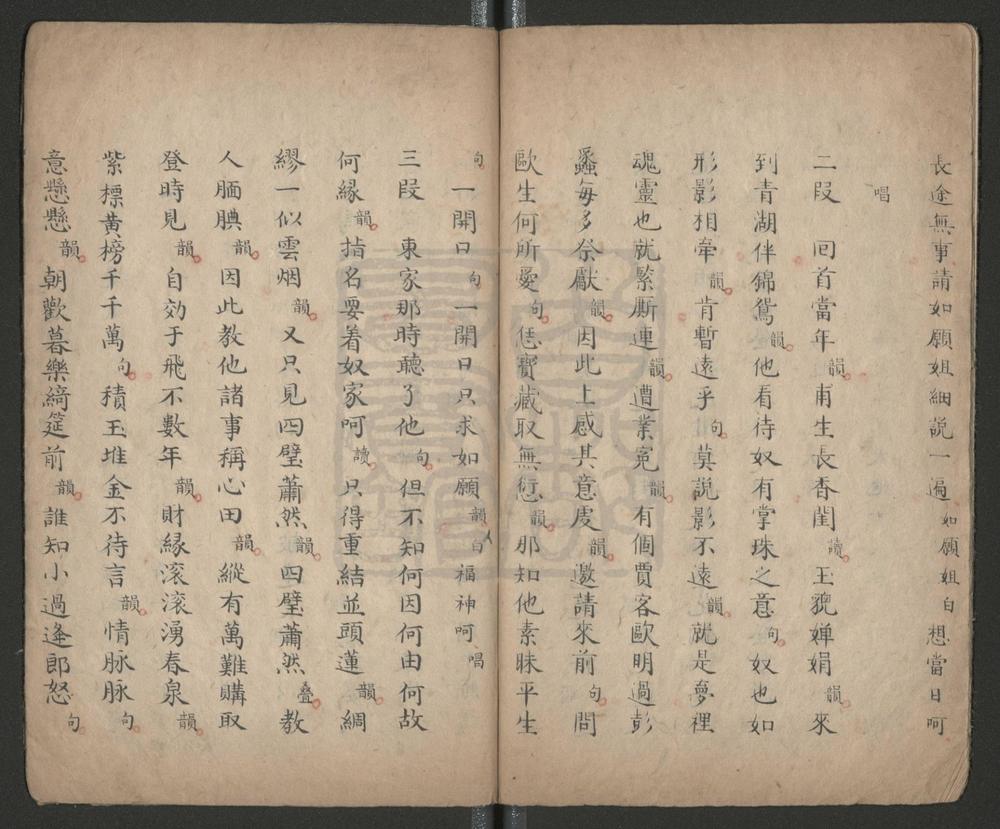 長途無事請如願姐細説一遍如願姐白想當日呵
唱
二段 回首當年韻甫生長香閨讀玉貌嬋娟韻來
到青湖伴錦鴛韻他看待奴有掌珠之意句奴也如
形影相牽韻肯暫遠乎句莫説影不遠韻就是夢裡
魂靈也就緊厮連韻遭業寃韻有個賈客歐明過彭
蠡每多祭獻韻因此上感其意虔韻邀請來前句問
歐生何所愛句恁寶藏取無愆韻那知他素昧平生
句一開口句一開口只求如願韻白福神呵唱
三段 東家那時聽了他句但不知何因何由何故
何緣韻指名要着奴家呵讀只得重結並頭蓮韻綢
繆一似雲烟韻又只見四璧蕭然韻四璧蕭然叠教
人腼腆韻因此教他諸事稱心田韻縱有萬難購取
登時見韻自効于飛不數年韻財緣滚滚湧春泉韻
紫標黄榜千千萬句積玉堆金不待言韻情脉脉句
意懸懸韻朝歡暮樂綺筵前韻誰知小過逢郎怒句